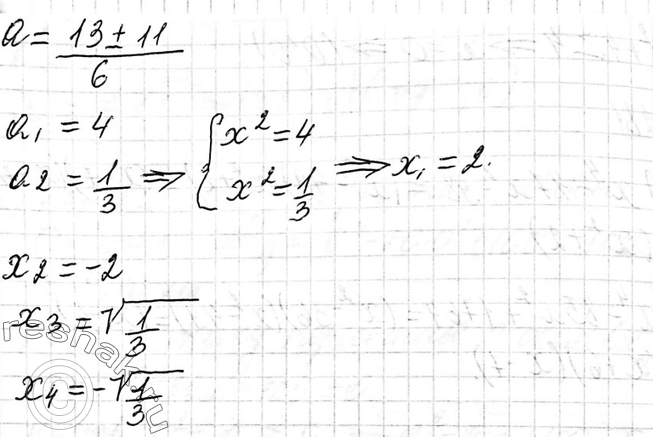 a = (13 ± 11) / 6
a₁ = 4
a₂ = 1/3 ⇒ { x² = 4
x² = 1/3 ⇒ x₁ = 2.
x₂ = -2
x₃ = √(1/3)
x₄ = -√(1/3)